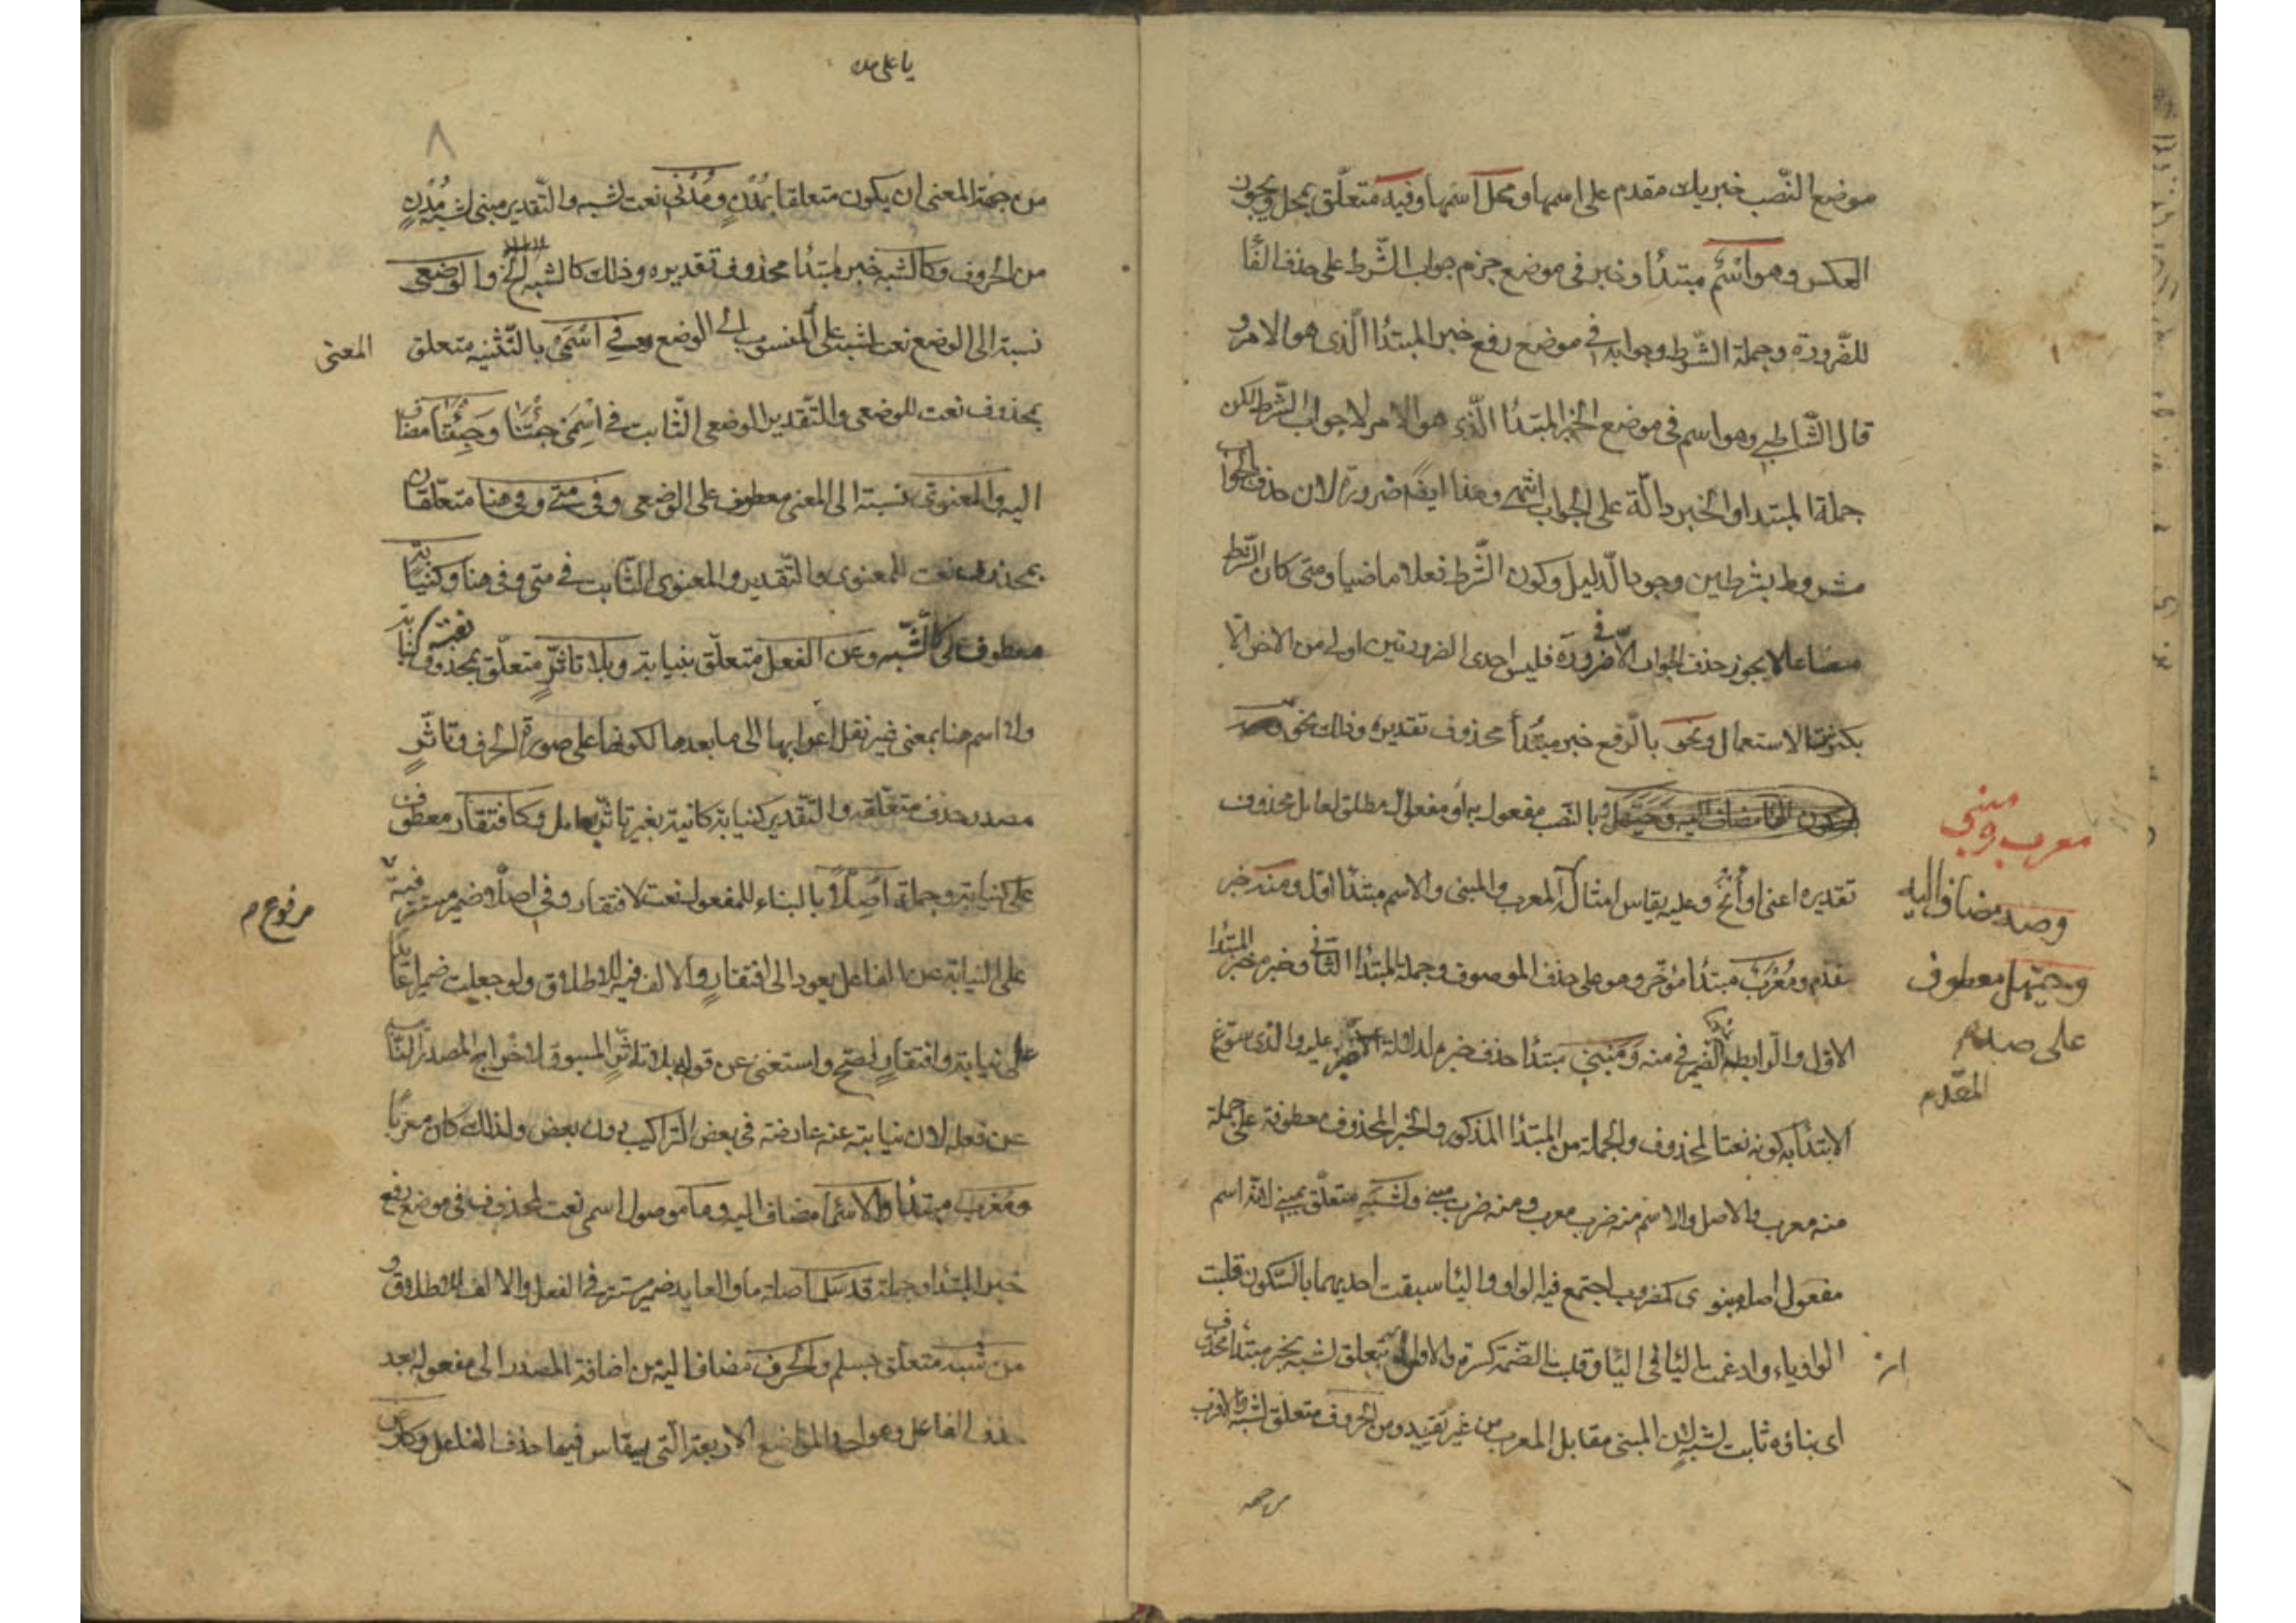 موضع النّصب خبر يك مقدم على اسمها ومحل اسمها وفيه متعلّق بمحل ويجوز
العكس وهو اسم مبتدأ وخبر في موضع جزم جواب الشّرط على حذف الفا
للضّرورة وجملة الشّرط وجوابه في موضع رفع خبر المبتدأ الّذي هو الامر و
قال الشّاطبي وهو اسم في موضع الخبر المبتدأ الّذي هو الامر لا جواب الشّرط لكن
جملة المبتدا والخبر دالّة على الجواب انتهى وهذا ايضا ضرورة لان حذف الجواب
مشروط بشرطين وجود الدّليل وكون الشّرط فعلا ماضيا ومتى كان الشّرط
مضارعا لا يجوز حذف الجواب الّا في ضرورة فليس احدى الضرورتين اولى من الاخرى الّا
بكثرة الاستعمال ونحو بالرّفع خبر مبتدأ محذوف تقديره وذلك نحو
بالنّصب مفعول به او مفعول مطلق لعامل محذوف
تقديره اعني او أنح وعليه يقاس امثاله المعرب والمبني والاسم مبتدأ اوّل ومنه خبر
مقدّم ومُعْرَب مبتدأ مؤخّر وهو على حذف الموصوف وجملة المبتدأ الثّاني وخبره خبر المبتدا
الاوّل والرّابط الضّمير في منه ومَبْني مبتدأ حذف خبره لدلالة عليه والّذي سوّغ
الابتدأ به كونه نعتا لمحذوف والجملة من المبتدأ المذكور والخبر المحذوف معطوفة على جملة
منه معرب والاصل والاسم منه ضرب معرب ومنه ضرب مبني ولشبه متعلّق بمبني لانّه اسم
مفعول اصله مبنوي كمضروب اجتمع فيه الواو واليأ سبقت احديهما بالسّكون قلبت
الواو ياء وادغمت اليأ في اليأ وقلبت الضّمة كسرة والاولى تعلق لشبه بخبر مبتدأ محذوف
اى بناؤه ثابت لشبه لان المبني مقابل المعرب من غير تقييد ومن الحروف متعلّق لشبه
معرب ومبني
وصه مضاف اليه
وحيّهل معطوف
على صه
المقدّم
يا على
٨
من جهة المعنى ان يكون متعلقا بمُدْنٍ ومُدْني نعت لشبه والتّقدير مبني لشبه مُدْنٍ
من الحروف وكالشبه خبر لمبتدأ محذوف تقديره وذلك كالشبه الخ والوضعي
نسبة الى الوضع نعت لشبه على المنسوب الى الوضع وفي اسمَي بالتّثنية متعلق
المعنى
بمحذوف نعت للوضعي والتّقدير الوضعي الثّابت في اسمَي جئتنا وجئتنا مضاف
اليه والمعنوي نسبة الى المعنى معطوف على الوضعي وفي متى وفي هنا متعلّقان
بمحذوف نعت للمعنوي والتّقدير والمعنوي الثّابت في متى وفي هنا وكنيابة
معطوف على كالشّبه وعن الفعل متعلّق بنيابة وبلا تاثّرٍ متعلّق بمحذوف نعت كنيابة
ولا اسم هنا بمعنى غير نقل اعرابها الى ما بعدها لكونها على صورة الحرف وتاثّرٍ
مصدر حذف متعلّقه والتّقدير كنيابة كائنة بغير تاثّر بعامل وكافتقار معطوف
على كنيابة وجملة اُصِّلا بالبناء للمفعول نعت لافتقار وفي اصلا ضمير مستتر فيه
مرفوع
على النّيابة عن الفاعل يعود الى افتقارٍ والالف فيه للاطلاق ولو جعلت ضميرا عائدا
على نيابة وافتقار لصحّ واستغنى عن قوله بلا تاثّر المسوق لاخراج المصدر النّائب
عن فعله لان نيابته عنه عارضة في بعض التراكيب دون بعض ولذلك كان معربا
ومُعْرَب مبتدأ والاسما مضاف اليه وما موصول اسمي نعت لمحذوف في موضع رفع
خبر المبتدا وجملة قد سَلِما صلة ما والعايد ضمير مستتر في الفعل والالف للاطلاق و
من شَبَه متعلّق بسلم والحرف مضاف اليه من اضافة المصدر الى مفعوله بعد
حذف الفاعل وهو احد المواضع الاربعة الّتي ينقاس فيها حذف الفاعل